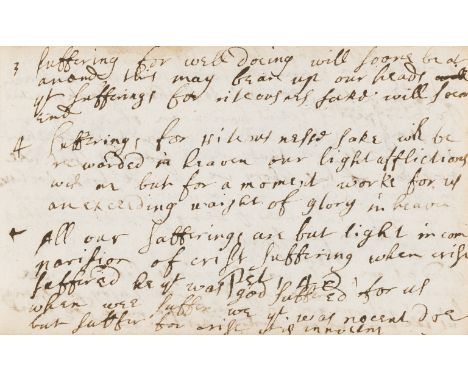 3 suffering for well doeing will soone be at
an end this may bear up our heads
yt sufferings for riteousnes sake will soon
end
4 sufferings for ritewsnesse sake will be
rewarded in heaven our light afflictions
wch are but for a moment works for us
an exceeding waight of glory in heaven
All our sufferings are but light in com
parision of crist suffering when crist
suffered he yt was god suffered for us
when wee suffer we yt was nocent doe
but suffer for crist innocent